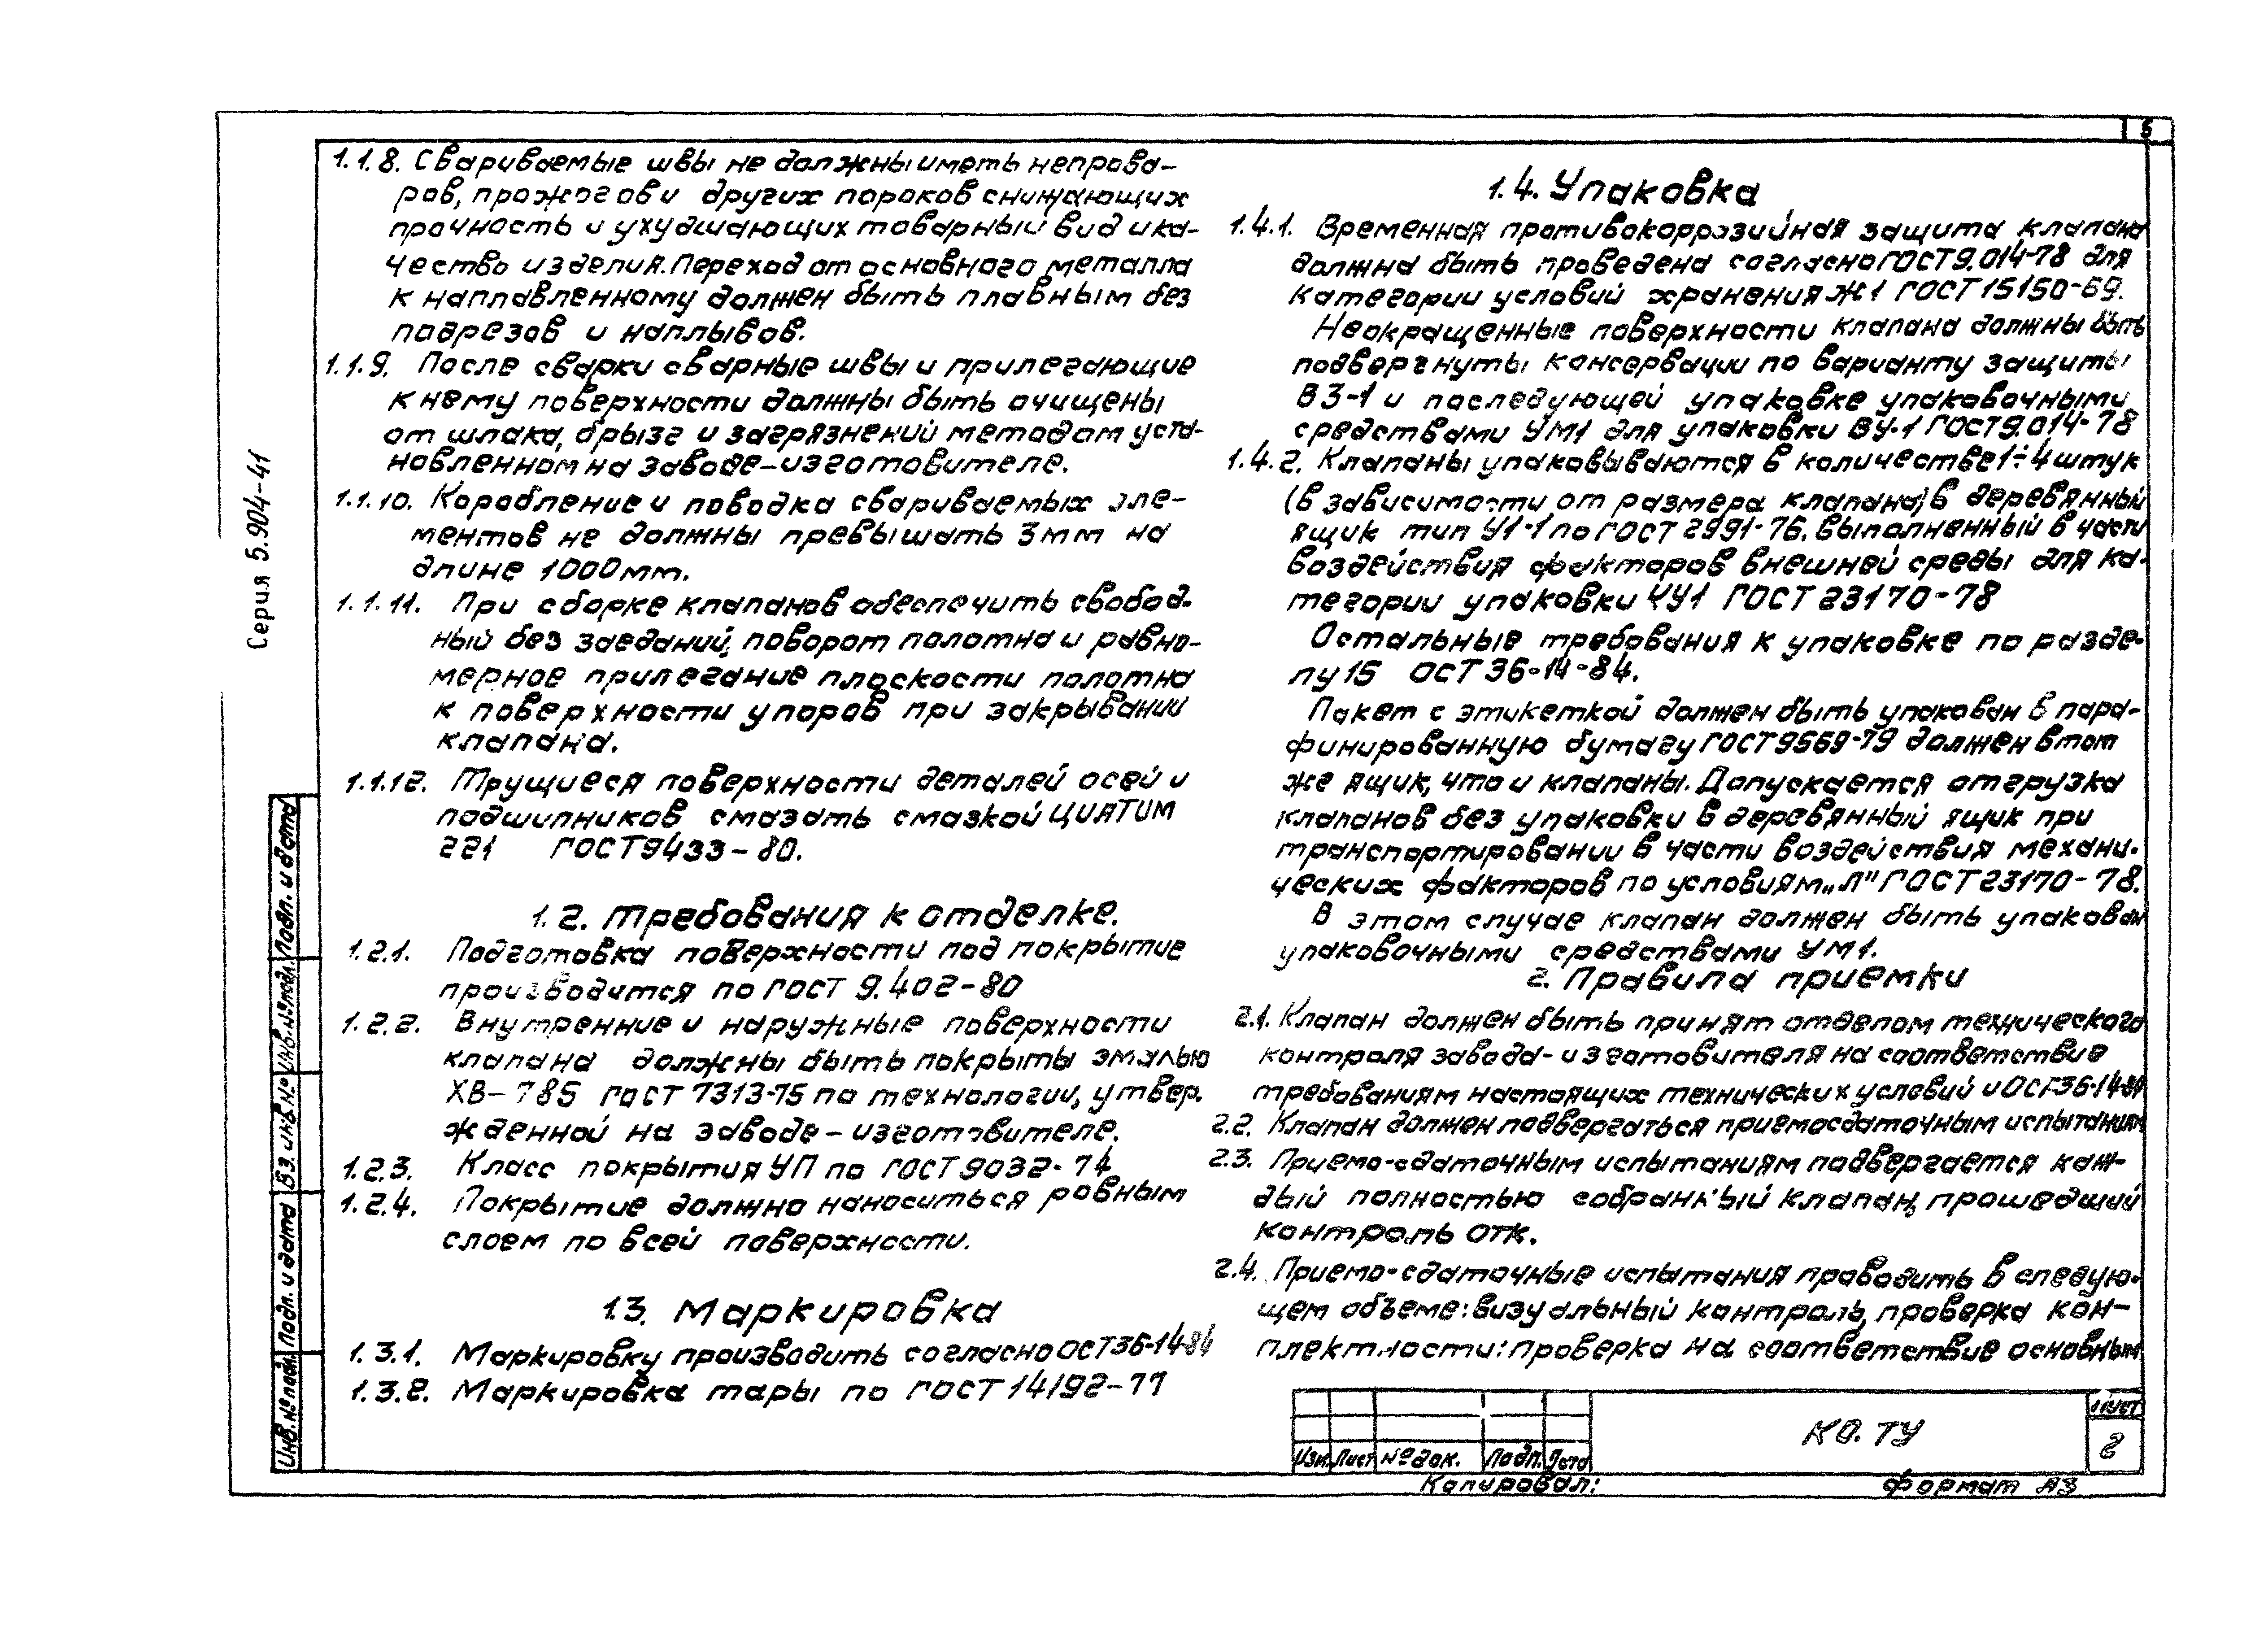 5
1.1.8. Свариваемые швы не должны иметь непрова-
ров, прожогов и других пороков снижающих
прочность и ухудшающих товарный вид и ка-
чество изделия. Переход от основного металла
к наплавленному должен быть плавным без
подрезов и наплывов.
1.1.9. После сварки сварные швы и прилегающие
к нему поверхности должны быть очищены
от шлака, брызг и загрязнений методам уста-
новленном на заводе-изготовителе.
1.1.10. Коробление и поводка свариваемых эле-
ментов не должны превышать 3мм на
длине 1000мм.
1.1.11. При сборке клапанов обеспечить свобод-
ный без заеданий, поворот полотна и равно-
мерное прилегание плоскости полотна
к поверхности упоров при закрывании
клапана.
1.1.12. Трущиеся поверхности деталей осей и
подшипников смазать смазкой ЦИАТИМ
221 ГОСТ 9433-80.
1.2. Требования к отделке.
1.2.1. Подготовка поверхности под покрытие
производится по ГОСТ 9.402-80
1.2.2. Внутренние и наружные поверхности
клапана должны быть покрыты эмалью
ХВ-785 ГОСТ 7313-75 по технологии, утвер-
жденной на заводе-изготовителе.
1.2.3. Класс покрытия УП по ГОСТ 9032-74
1.2.4. Покрытие должно наноситься ровным
слоем по всей поверхности.
1.3. Маркировка
1.3.1. Маркировку производить согласно ОСТ 36-14-84
1.3.2. Маркировка тары по ГОСТ 14192-77
1.4. Упаковка
1.4.1. Временная противокоррозийная защита клапана
должна быть проведена согласно ГОСТ 9.014-78 для
категории условий хранения Ж1 ГОСТ 15150-69.
Неокращенные поверхности клапана должны быть
подвергнуты консервации по варианту защиты
ВЗ-1 и последующей упаковке упаковочными
средствами УМ1 для упаковки ВУ-1 ГОСТ 9.014-78
1.4.2. Клапаны упаковываются в количестве 1÷4 штук
(в зависимости от размера клапана) в деревянный
ящик тип У1-1 по ГОСТ 2991-76. выполненный в части
воздействия факторов внешней среды для ка-
тегории упаковки УУ1 ГОСТ 23170-78
Остальные требования к упаковке по разде-
лу 15 ОСТ 36-14-84.
Пакет с этикеткой должен быть упакован в пара-
финированную бумагу ГОСТ 9569-79 должен в тот
же ящик, что и клапаны. Допускается отгрузка
клапанов без упаковки в деревянный ящик при
транспортировании в части воздействия механи-
ческих факторов по условиям „Л" ГОСТ 23170-78.
В этом случае клапан должен быть упакован
упаковочными средствами УМ1.
2. Правила приемки
2.1. Клапан должен быть принят отделом технического
контроля завода-изготовителя на соответствие
требованиям настоящих технических условий и ОСТ 36-14-84
2.2. Клапан должен подвергаться приемосдаточным испытаниям
2.3. Приемо-сдаточным испытаниям подвергается каж-
дый полностью собранный клапан, прошедший
контроль ОТК.
2.4. Приемо-сдаточные испытания проводить в следую-
щем объеме: визуальный контроль, проверка кон-
плектности: проверка на соответствие основным
Серия 5.904-41
Подп. и дата
Инв. № подл.
Вз. инв №
Подп. и дата
Инв. № подл.
Изм. Лист № док. Подп. Дата
КО. ТУ
Лист
2
Копировал:
Формат А3